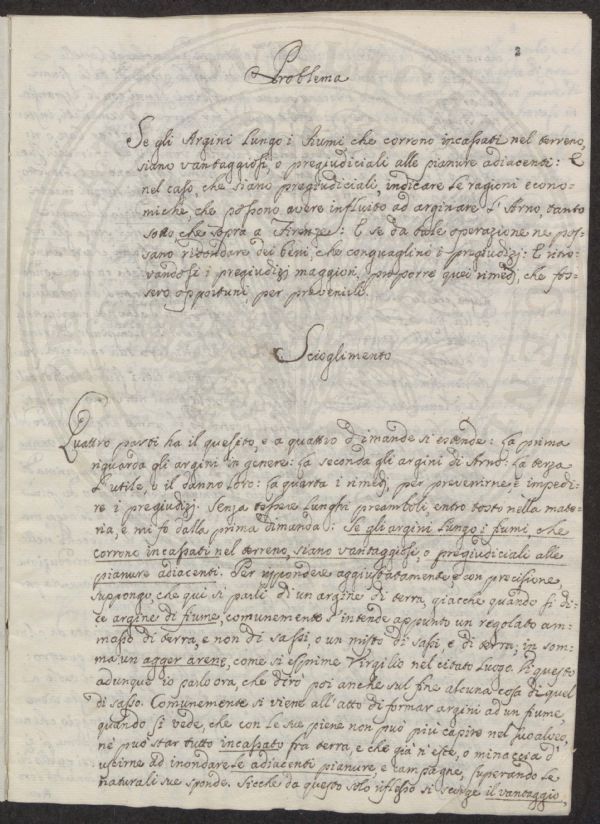 2
Problema
Se gli Argini lungo i fiumi che corrono incassati nel terreno,
siano vantaggiosi, o pregiudiciali alle pianure adiacenti: E
nel caso, che siano pregiudiciali, indicare le ragioni econo-
miche, che possono avere influito ad arginare l'Arno, tanto
sotto che sopra a Firenze: E se da tale operazione ne pos-
sano ridondare dei beni, che conguaglino i pregiudizj: E ritro-
vandosi i pregiudizj maggiori, proporre quei rimedj, che fos-
sero opportuni per prevenirli.
Scioglimento
Quattro parti ha il quesito, e a quattro dimande si estende: la prima
riguarda gli argini in genere: la seconda gli argini di Arno: la terza
l'utile, o il danno loro: la quarta i rimedj, per prevenirne e impedi-
re i pregiudizj. Senza tessere lunghi preamboli, entro tosto nella mate-
ria, e mi fo dalla prima dimanda: Se gli argini lungo i fiumi, che
corrono incassati nel terreno, siano vantaggiosi, o pregiudiciali alle
pianure adiacenti. Per rispondere aggiustatamente e con precisione,
suppongo, che qui si parli di un argine di terra, giacche quando si di-
ce argine di fiume, comunemente s'intende appunto un regolato am-
masso di terra, e non di sassi, o un misto di sassi, e di terra; in som-
ma un agger arenæ, come si esprime Virgilio nel citato luogo. Di questo
adunque io parlo ora, che dirò poi anche sul fine alcuna cosa di quel
di sasso. Comunemente si viene all'atto di formar argini ad un fiume,
quando si vede, che con le sue piene non può più capire nel suo alveo,
né può star tutto incassato fra terra, e che già n'esce, o minaccia d'
uscirne ad inondare le adiacenti pianure, e campagne, superando le
naturali sue sponde. Sicche da questo solo riflesso si scorge il vantaggio,